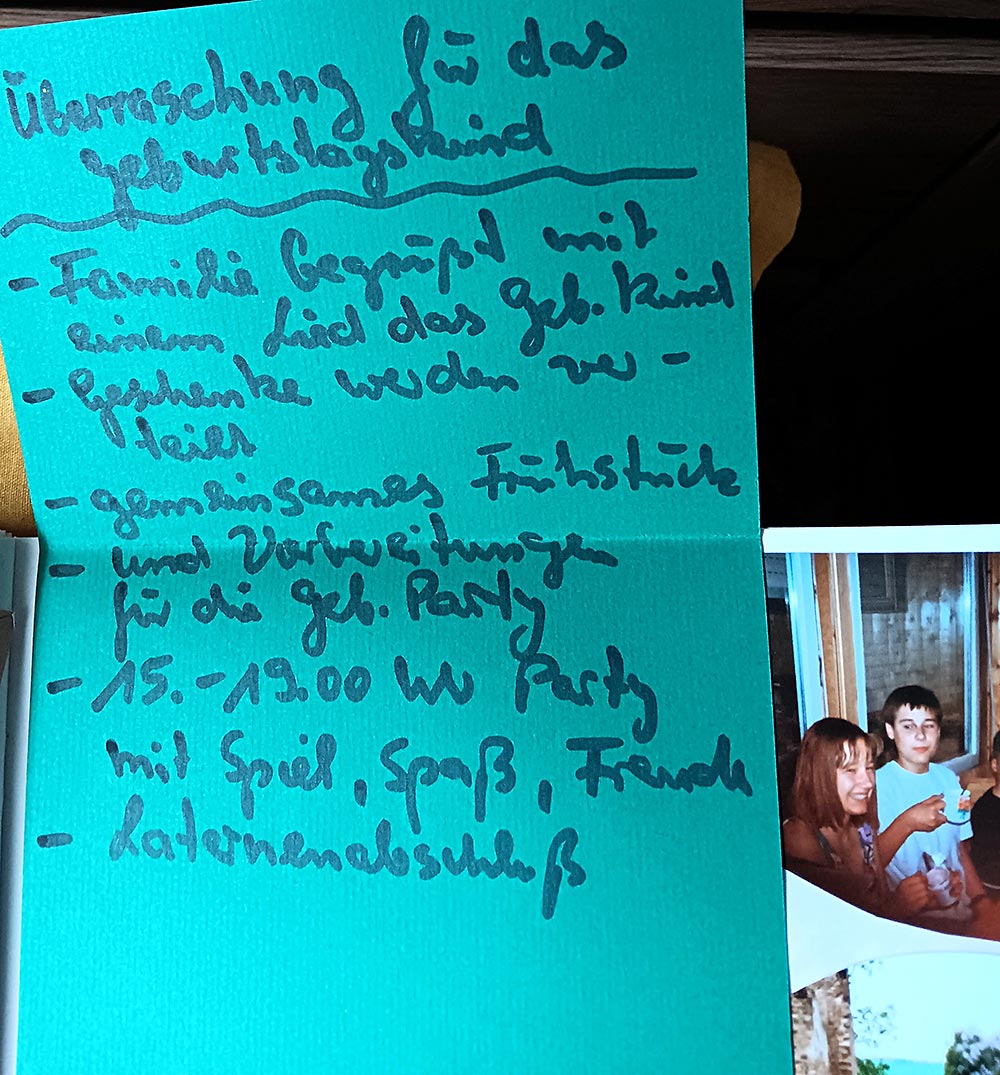 Überraschung für das
Geburtstagskind
- Familie begrüßt mit
einem Lied das Geb. kind
- Geschenke werden ver-
teilt
- gemeinsames Frühstück
- und Vorbereitungen
für die Geb. Party
- 15.-19.00 Uhr Party
mit Spiel, Spaß, Freude
- Laternenabschluß